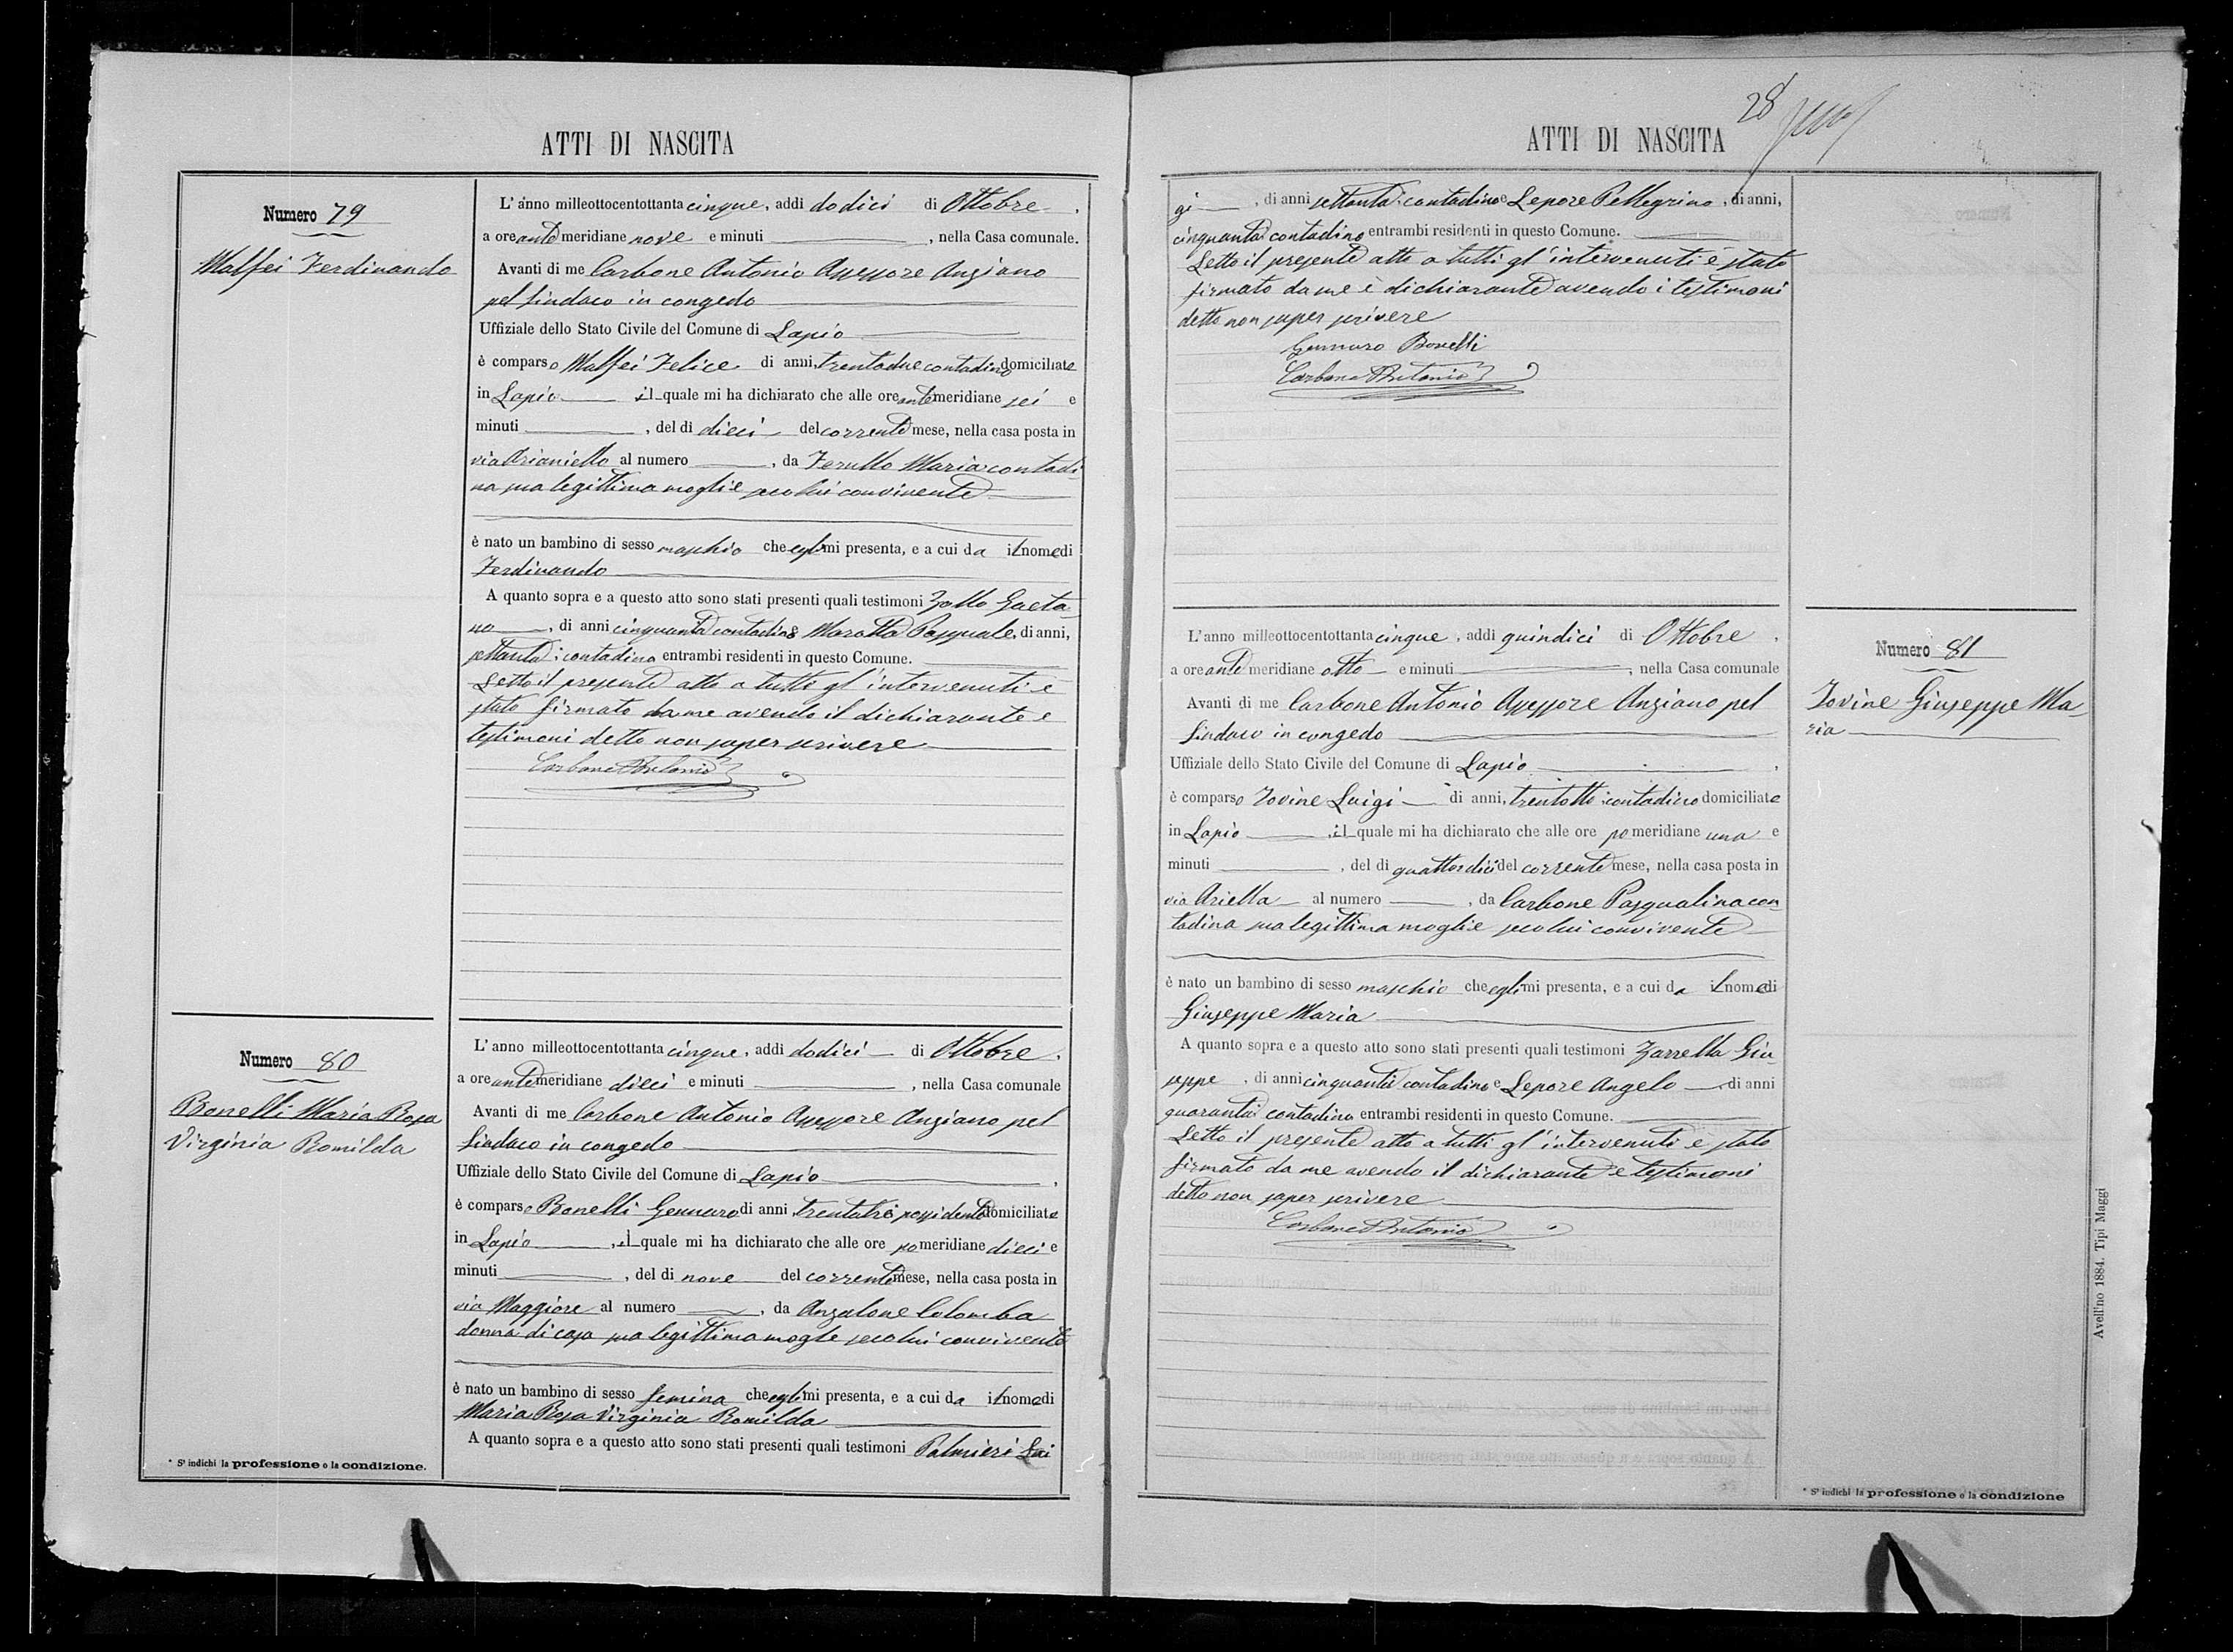 ATTI DI NASCITA
Numero 79
Maffei Ferdinando
L'anno milleottocentottanta cinque, addi dodici di Ottobre,
a ore ante meridiane nove e minuti , nella Casa comunale.
Avanti di me Carbone Antonio Assessore Anziano
pel Sindaco in congedo
Uffiziale dello Stato Civile del Comune di Lapio
è comparso Maffei Felice di anni, trentadue contadino domiciliato
in Lapio il quale mi ha dichiarato che alle ore ante meridiane sei e
minuti , del di dieci del corrente mese, nella casa posta in
via Arianiello al numero , da Ferullo Maria contadi
na sua legittima moglie seco lui convivente
è nato un bambino di sesso maschio che egli mi presenta, e a cui da il nome di
Ferdinando
A quanto sopra e a questo atto sono stati presenti quali testimoni Zollo Gaeta
no , di anni cinquanta contadino e Marotta Pasquale, di anni,
settanta contadino entrambi residenti in questo Comune.
Letto il presente atto a tutti gl'intervenuti è
stato firmato da me avendo il dichiarante e
testimoni detto non saper scrivere
Carbone Antonio
Numero 80
Bonelli Maria Rosa
Virginia Romilda
L'anno milleottocentottanta cinque, addi dodici di Ottobre,
a ore ante meridiane dieci e minuti , nella Casa comunale
Avanti di me Carbone Antonio Assessore Anziano pel
Sindaco in congedo
Uffiziale dello Stato Civile del Comune di Lapio ,
è comparso Bonelli Gennaro di anni trentatre possidente domiciliato
in Lapio , il quale mi ha dichiarato che alle ore po meridiane dieci e
minuti , del di nove del corrente mese, nella casa posta in
via Maggiore al numero , da Anzalone Colomba
donna di casa sua legittima mogle seco lui convivente
è nato un bambino di sesso femina che egli mi presenta, e a cui da il nome di
Maria Rosa Virginia Romilda
A quanto sopra e a questo atto sono stati presenti quali testimoni Palmieri Lui
* S' indichi la professione o la condizione.
28
ATTI DI NASCITA
gi , di anni settanta contadino e Lepore Pellegrino, di anni,
cinquanta contadino entrambi residenti in questo Comune.
Letto il presente atto a tutti gl'intervenuti è stato
firmato da me è dichiarante avendo i testimoni
detto non saper scrivere
Gennaro Bonelli
Carbone Antonio
Numero 81
Iovine Giuseppe Ma
ria
L'anno milleottocentottanta cinque, addi quindici di Ottobre,
a ore ante meridiane otto e minuti , nella Casa comunale
Avanti di me Carbone Antonio Assessore Anziano pel
Sindaco in congedo
Uffiziale dello Stato Civile del Comune di Lapio ,
è comparso Iovine Luigi di anni, trentotto contadino domiciliato
in Lapio , il quale mi ha dichiarato che alle ore po meridiane una e
minuti , del di quattordici del corrente mese, nella casa posta in
via Ariella al numero , da Carbone Pasqualina con
tadina sua legittima moglie seco lui convivente
è nato un bambino di sesso maschio che egli mi presenta, e a cui da il nome di
Giuseppe Maria
A quanto sopra e a questo atto sono stati presenti quali testimoni Zarrella Giu
seppe , di anni cinquanta contadino e Lepore Angelo , di anni
quaranta contadino entrambi residenti in questo Comune.
Letto il presente atto a tutti gl'intervenuti è stato
firmato da me avendo il dichiarante e testimoni
detto non saper scrivere
Carbone Antonio
Avellino 1884. Tipi Maggi
* S' indichi la professione o la condizione